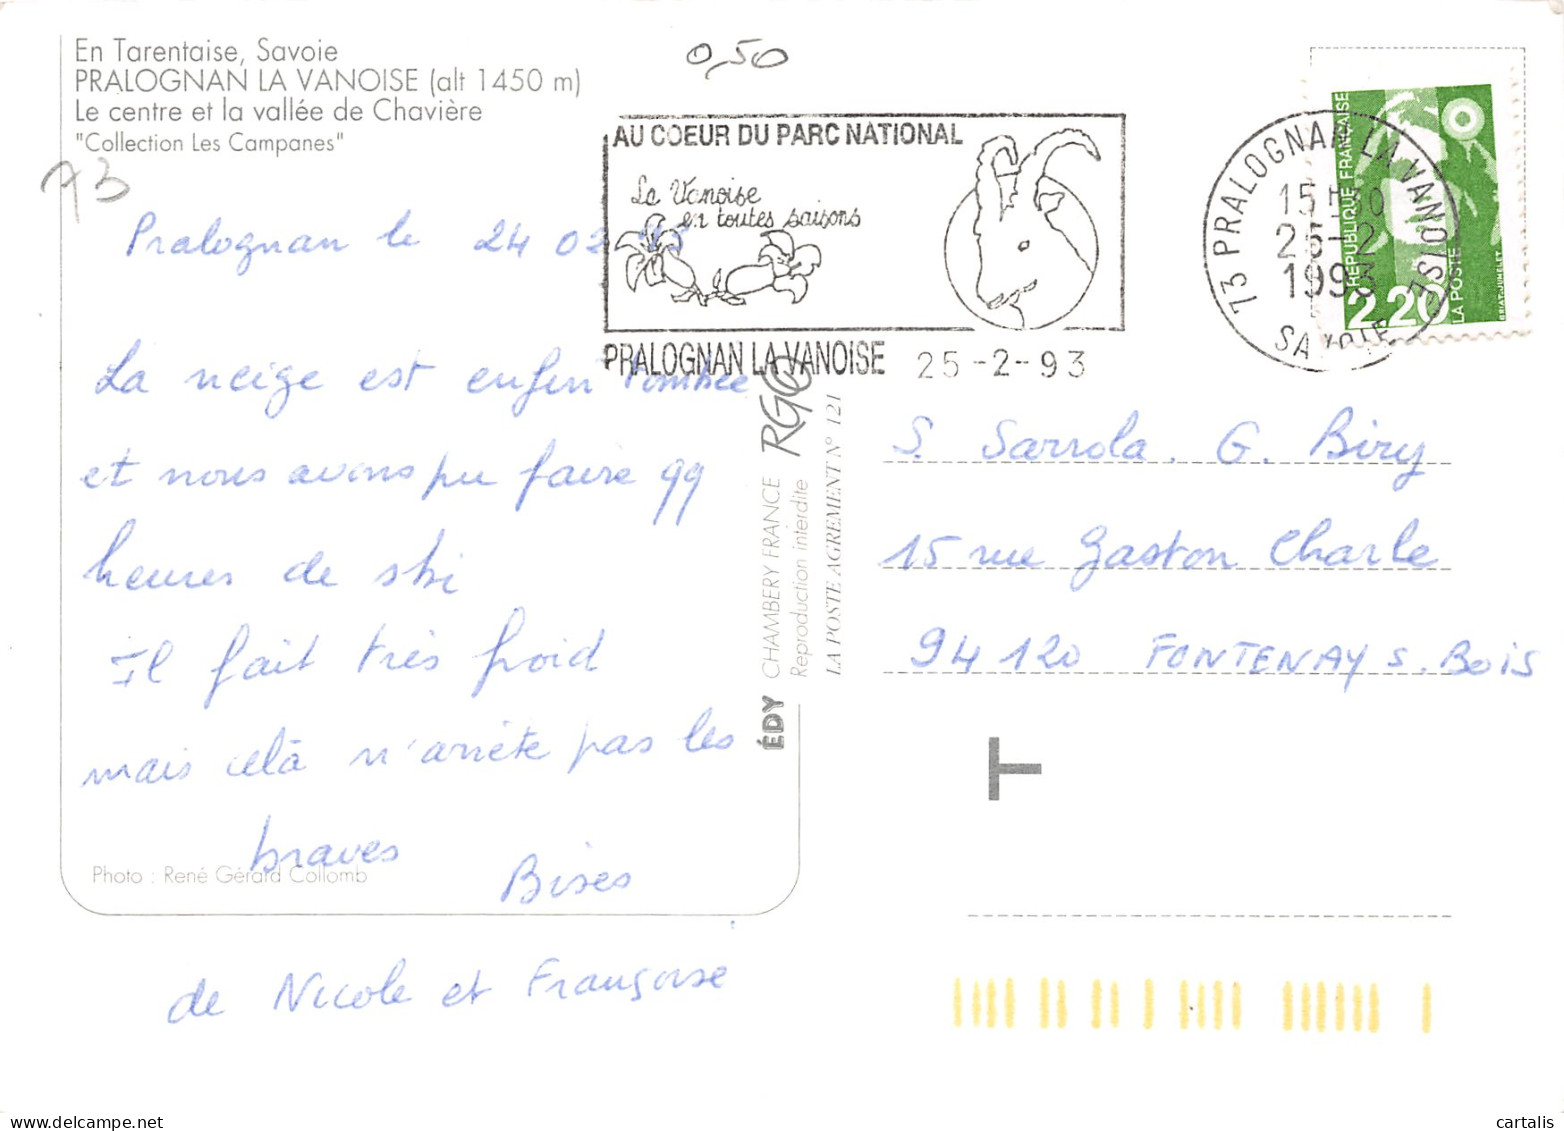 En Tarentaise, Savoie
PRALOGNAN LA VANOISE (alt 1450 m)
Le centre et la vallée de Chavière
"Collection Les Campanes"
0,50
73
AU COEUR DU PARC NATIONAL
La Vanoise
en toutes saisons
PRALOGNAN LA VANOISE 25-2-93
73 PRALOGNAN LA VANOISE
15H30
25-2
1993
SAVOIE
REPUBLIQUE FRANÇAISE
2,20
LA POSTE
BRIAT-JUMELET
Pralognan le 24 02
La neige est enfin tombée
et nous avons pu faire 99
heures de ski
Il fait très froid
mais celà n'arrête pas les
braves
Bises
de Nicole et Françoise
Photo : René Gérard Collomb
ÉDY CHAMBERY FRANCE RGC
Reproduction interdite
LA POSTE AGREMENT N° 121
S. Sarrola. G. Biry
15 rue Gaston Charle
94120 FONTENAY S. BOIS
T
cartalis